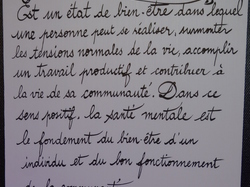 Est un état de bien-être dans lequel
une personne peut se réaliser, surmonter
les tensions normales de la vie, accomplir
un travail productif et contribuer à
la vie de sa communauté. Dans ce
sens positif, la santé mentale est
le fondement du bien être d'un
individu et du bon fonctionnement
de la communauté.